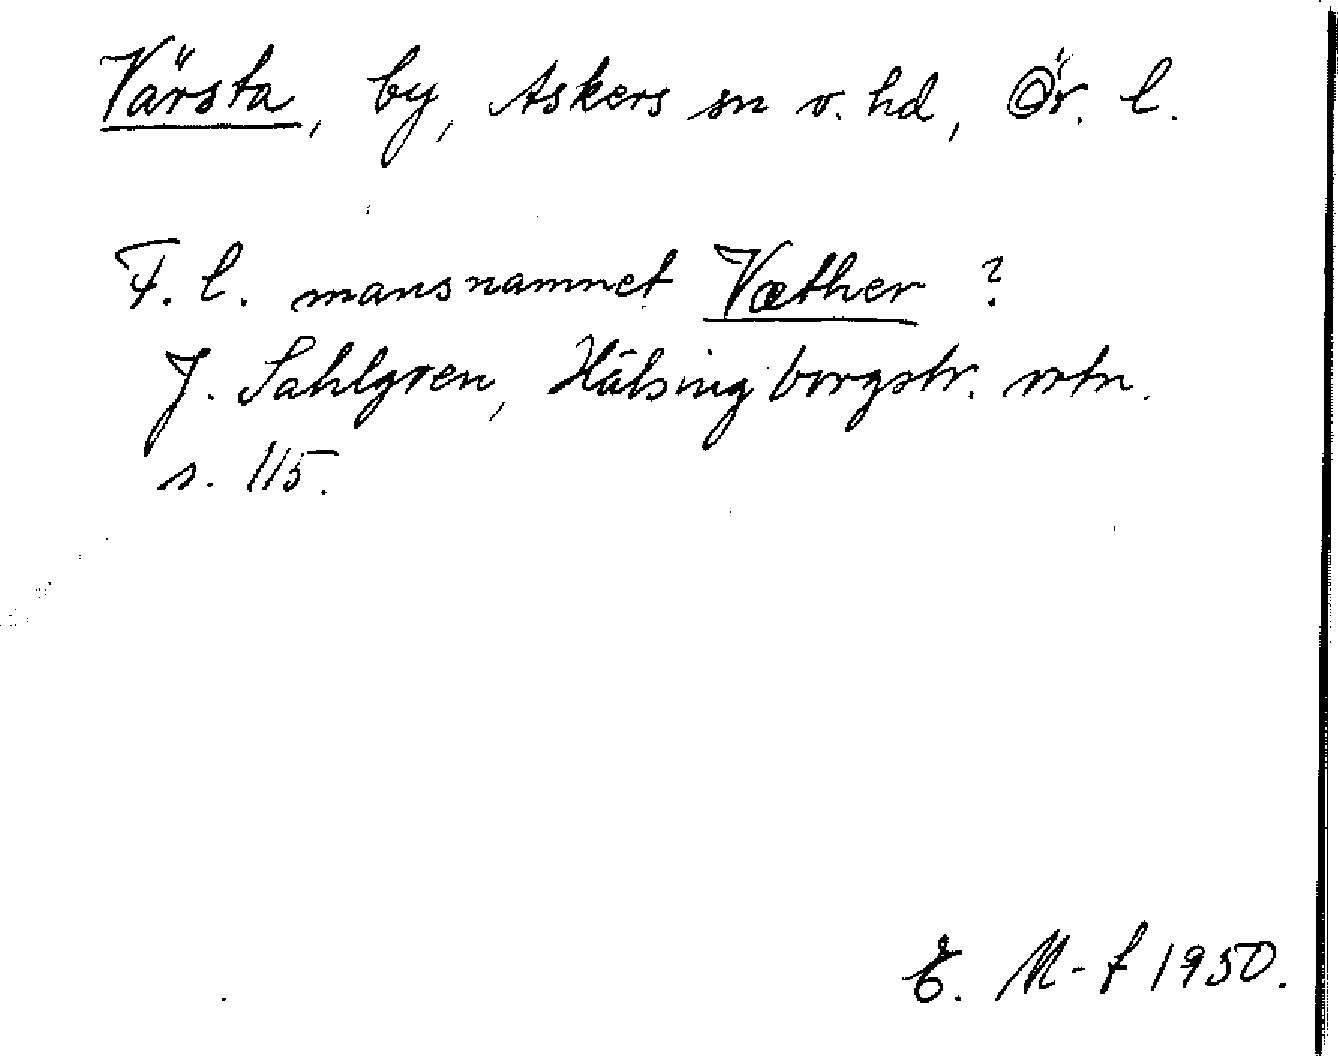 Värsta, by, Askers sn o. hd, Ör. l.
F. l. mansnamnet Væther ?
J. Sahlgren, Hälsingborgstr. ortn.
s. 115.
E. M-f 1950.